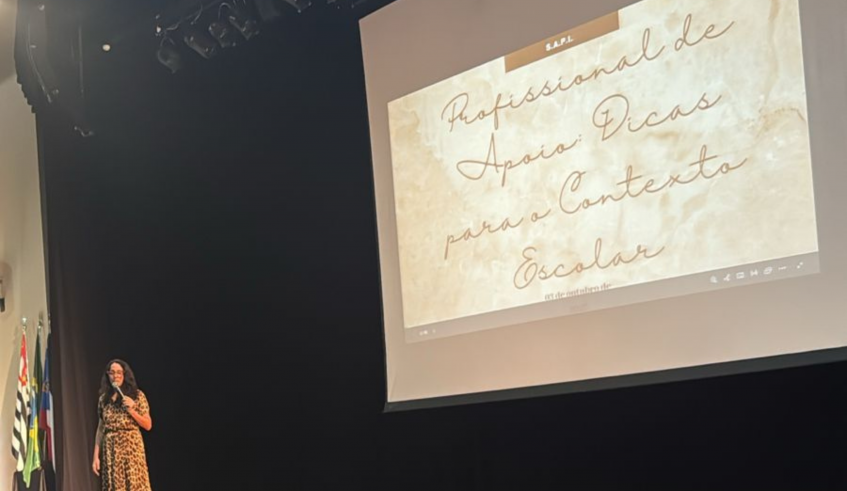 S.A.P.I.
Profissional de
Apoio: Dicas
para o Contexto
Escolar
03 de outubro de